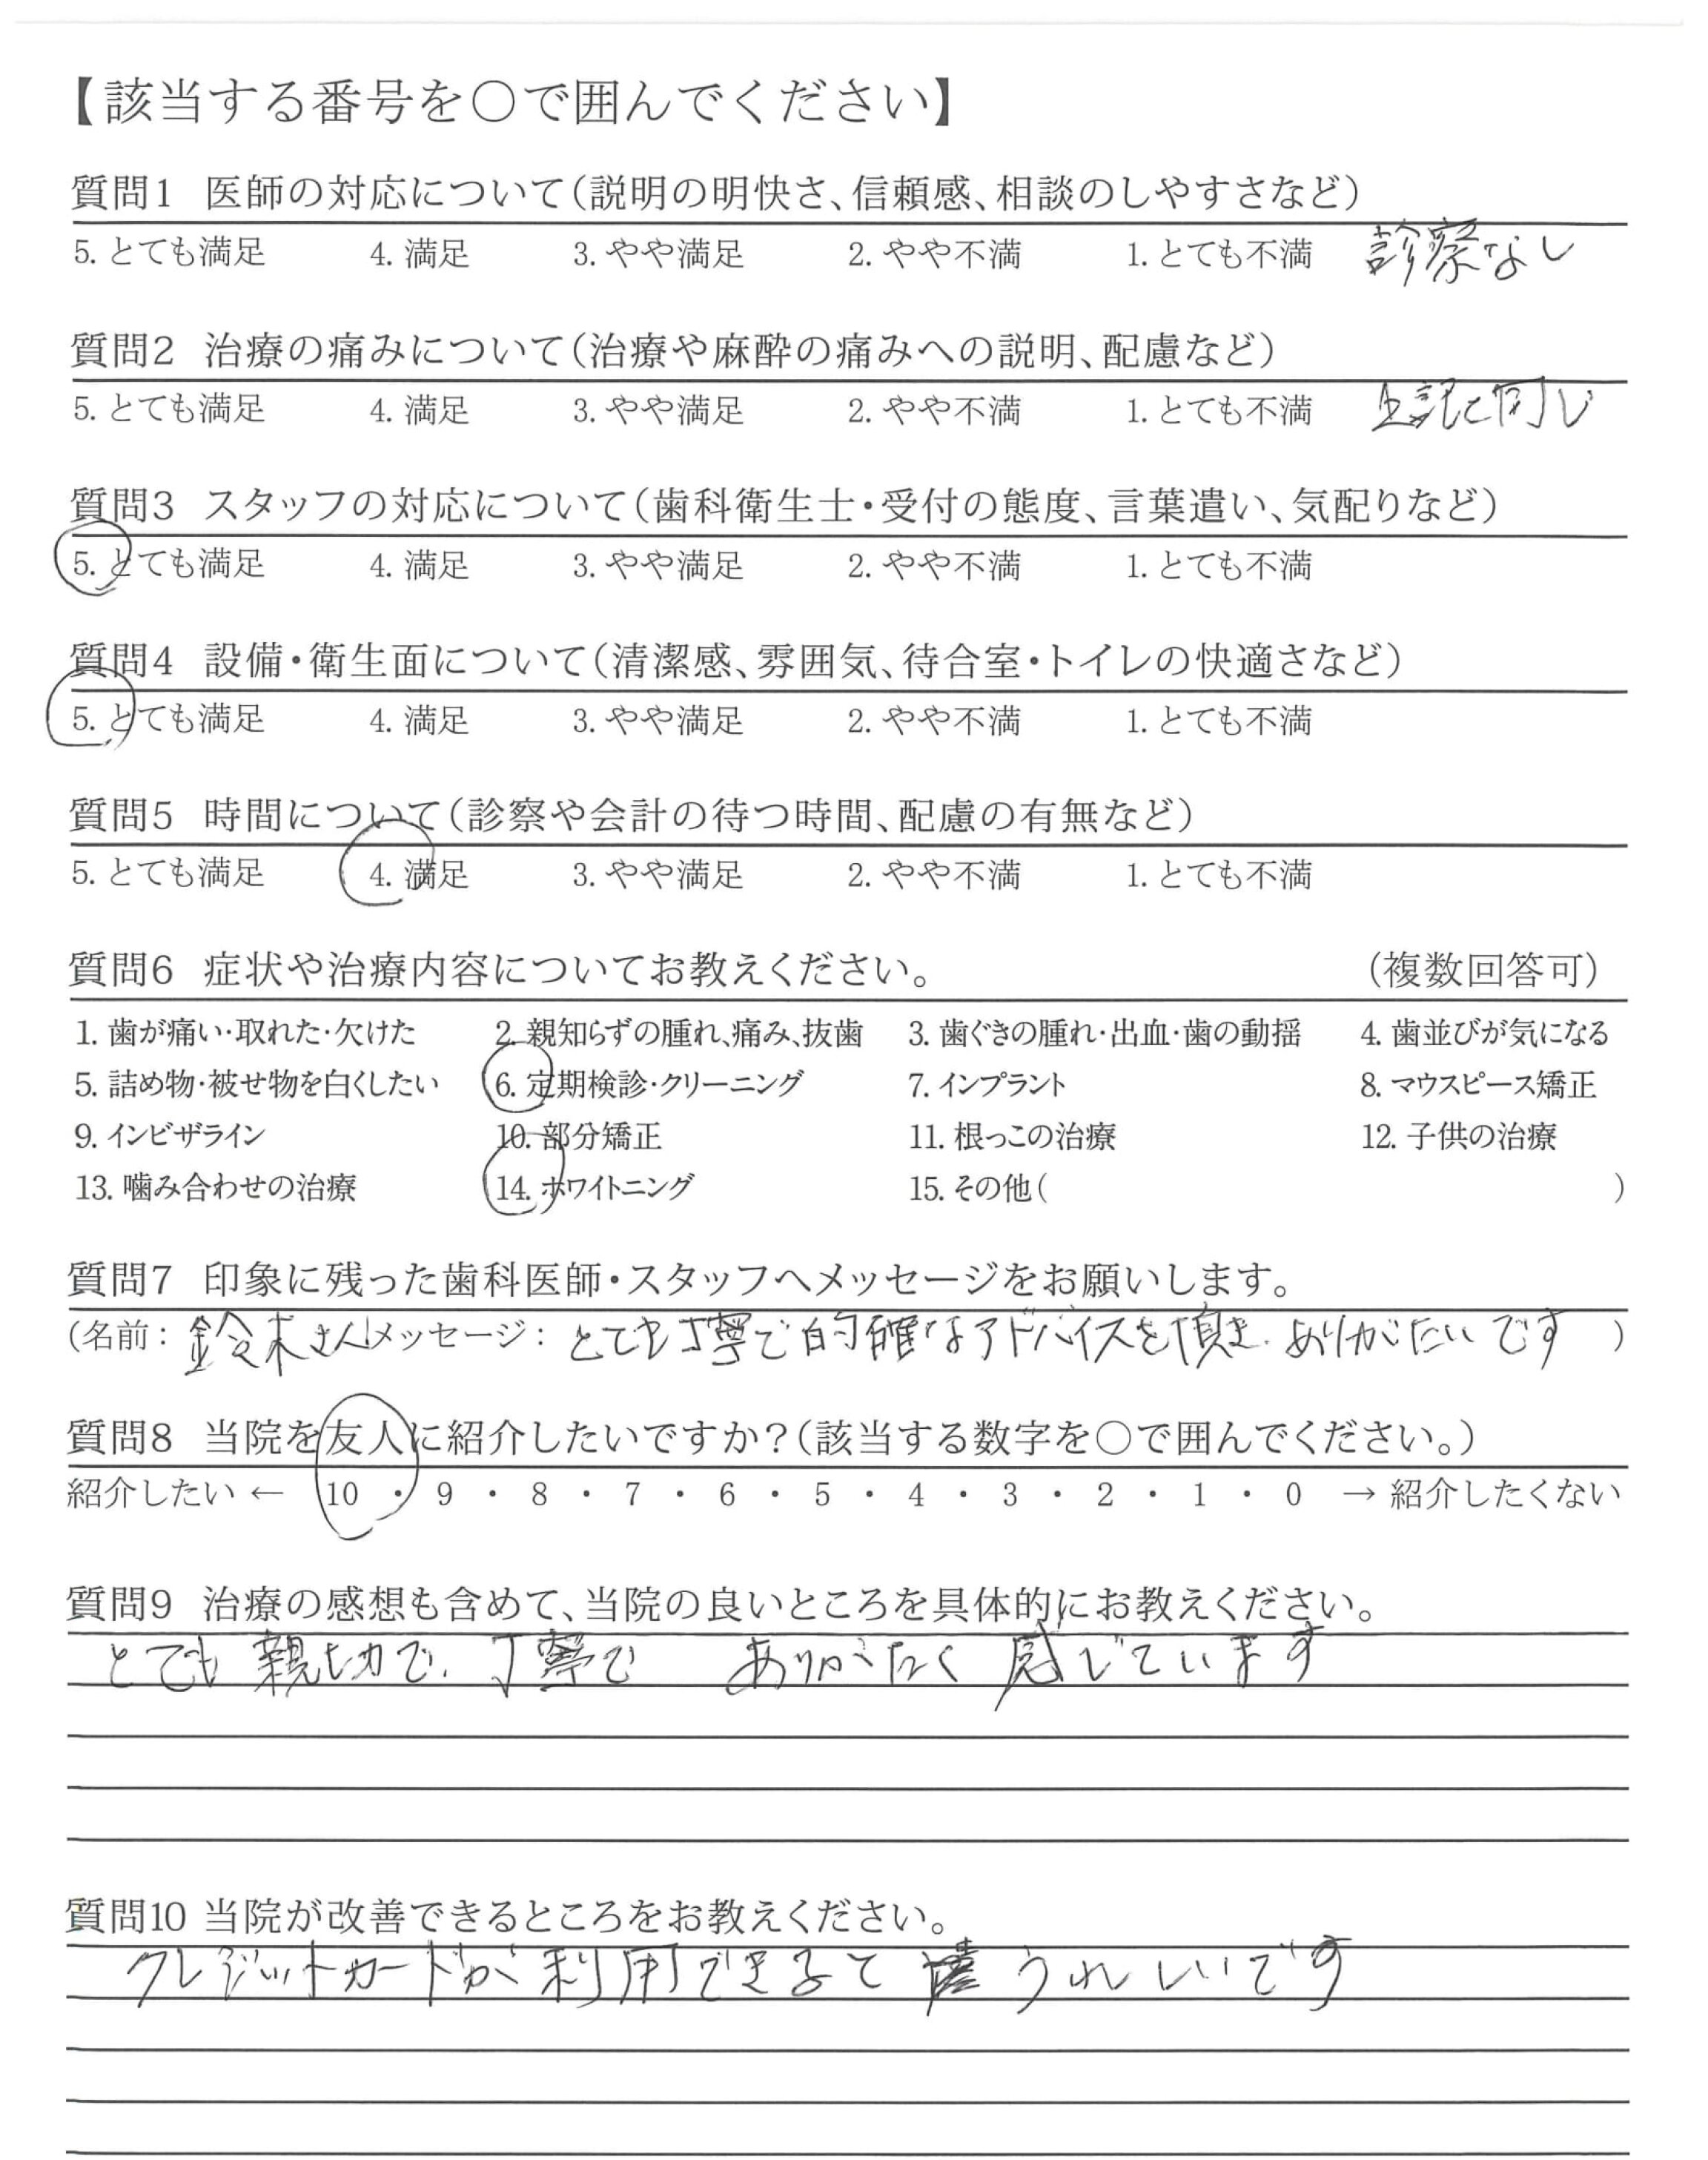 【該当する番号を○で囲んでください】
質問1 医師の対応について(説明の明快さ、信頼感、相談のしやすさなど)
5. とても満足 4. 満足 3. やや満足 2. やや不満 1. とても不満 診察なし
質問2 治療の痛みについて(治療や麻酔の痛みへの説明、配慮など)
5. とても満足 4. 満足 3. やや満足 2. やや不満 1. とても不満 上記と同じ
質問3 スタッフの対応について(歯科衛生士・受付の態度、言葉遣い、気配りなど)
5. とても満足 4. 満足 3. やや満足 2. やや不満 1. とても不満
質問4 設備・衛生面について(清潔感、雰囲気、待合室・トイレの快適さなど)
5. とても満足 4. 満足 3. やや満足 2. やや不満 1. とても不満
質問5 時間について(診察や会計の待つ時間、配慮の有無など)
5. とても満足 4. 満足 3. やや満足 2. やや不満 1. とても不満
質問6 症状や治療内容についてお教えください。 (複数回答可)
1. 歯が痛い・取れた・欠けた 2. 親知らずの腫れ、痛み、抜歯 3. 歯ぐきの腫れ・出血・歯の動揺 4. 歯並びが気になる
5. 詰め物・被せ物を白くしたい 6. 定期検診・クリーニング 7. インプラント 8. マウスピース矯正
9. インビザライン 10. 部分矯正 11. 根っこの治療 12. 子供の治療
13. 噛み合わせの治療 14. ホワイトニング 15. その他( )
質問7 印象に残った歯科医師・スタッフへメッセージをお願いします。
(名前: 鈴木さん メッセージ: とても丁寧で的確なアドバイスを頂き、ありがたいです )
質問8 当院を友人に紹介したいですか?(該当する数字を○で囲んでください。)
紹介したい ← 10 ・ 9 ・ 8 ・ 7 ・ 6 ・ 5 ・ 4 ・ 3 ・ 2 ・ 1 ・ 0 → 紹介したくない
質問9 治療の感想も含めて、当院の良いところを具体的にお教えください。
とても親切で、丁寧で ありがたく感じています
質問10 当院が改善できるところをお教えください。
クレジットカードが利用できるて うれしいです